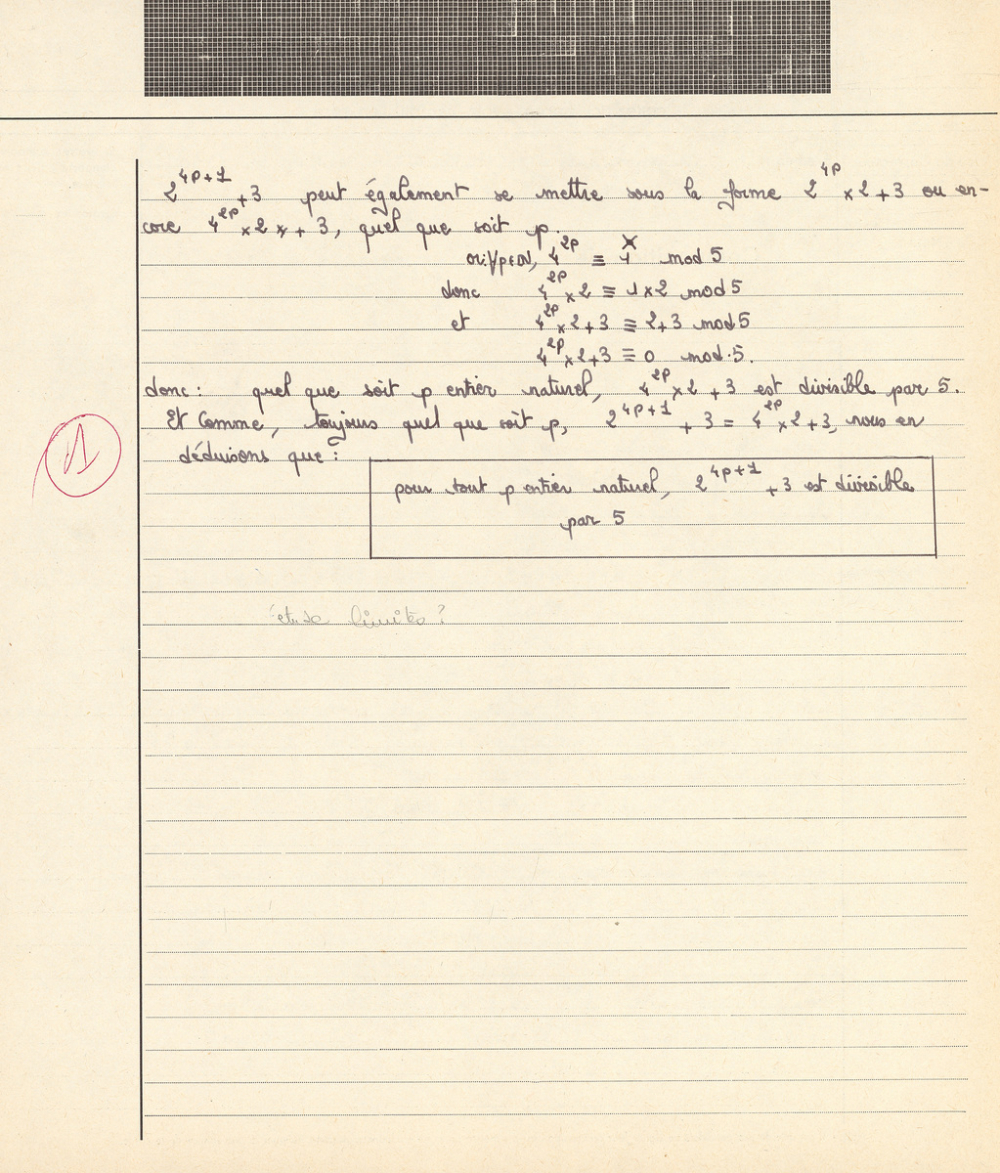 2^{4p+1} + 3 peut également se mettre sous la forme 2^{4p} × 2 + 3 ou en-
core 4^{2p} × 2 + 3, quel que soit p.
or: ∀p∈ℕ, 4^{2p} ≡ 1 mod 5
donc 4^{2p} × 2 ≡ 1 × 2 mod 5
et 4^{2p} × 2 + 3 ≡ 2 + 3 mod 5
4^{2p} × 2 + 3 ≡ 0 mod 5.
donc : quel que soit p entier naturel, 4^{2p} × 2 + 3 est divisible par 5.
Et comme, toujours quel que soit p, 2^{4p+1} + 3 = 4^{2p} × 2 + 3, nous en
déduisons que :
1
pour tout p entier naturel, 2^{4p+1} + 3 est divisible
par 5
limites ?